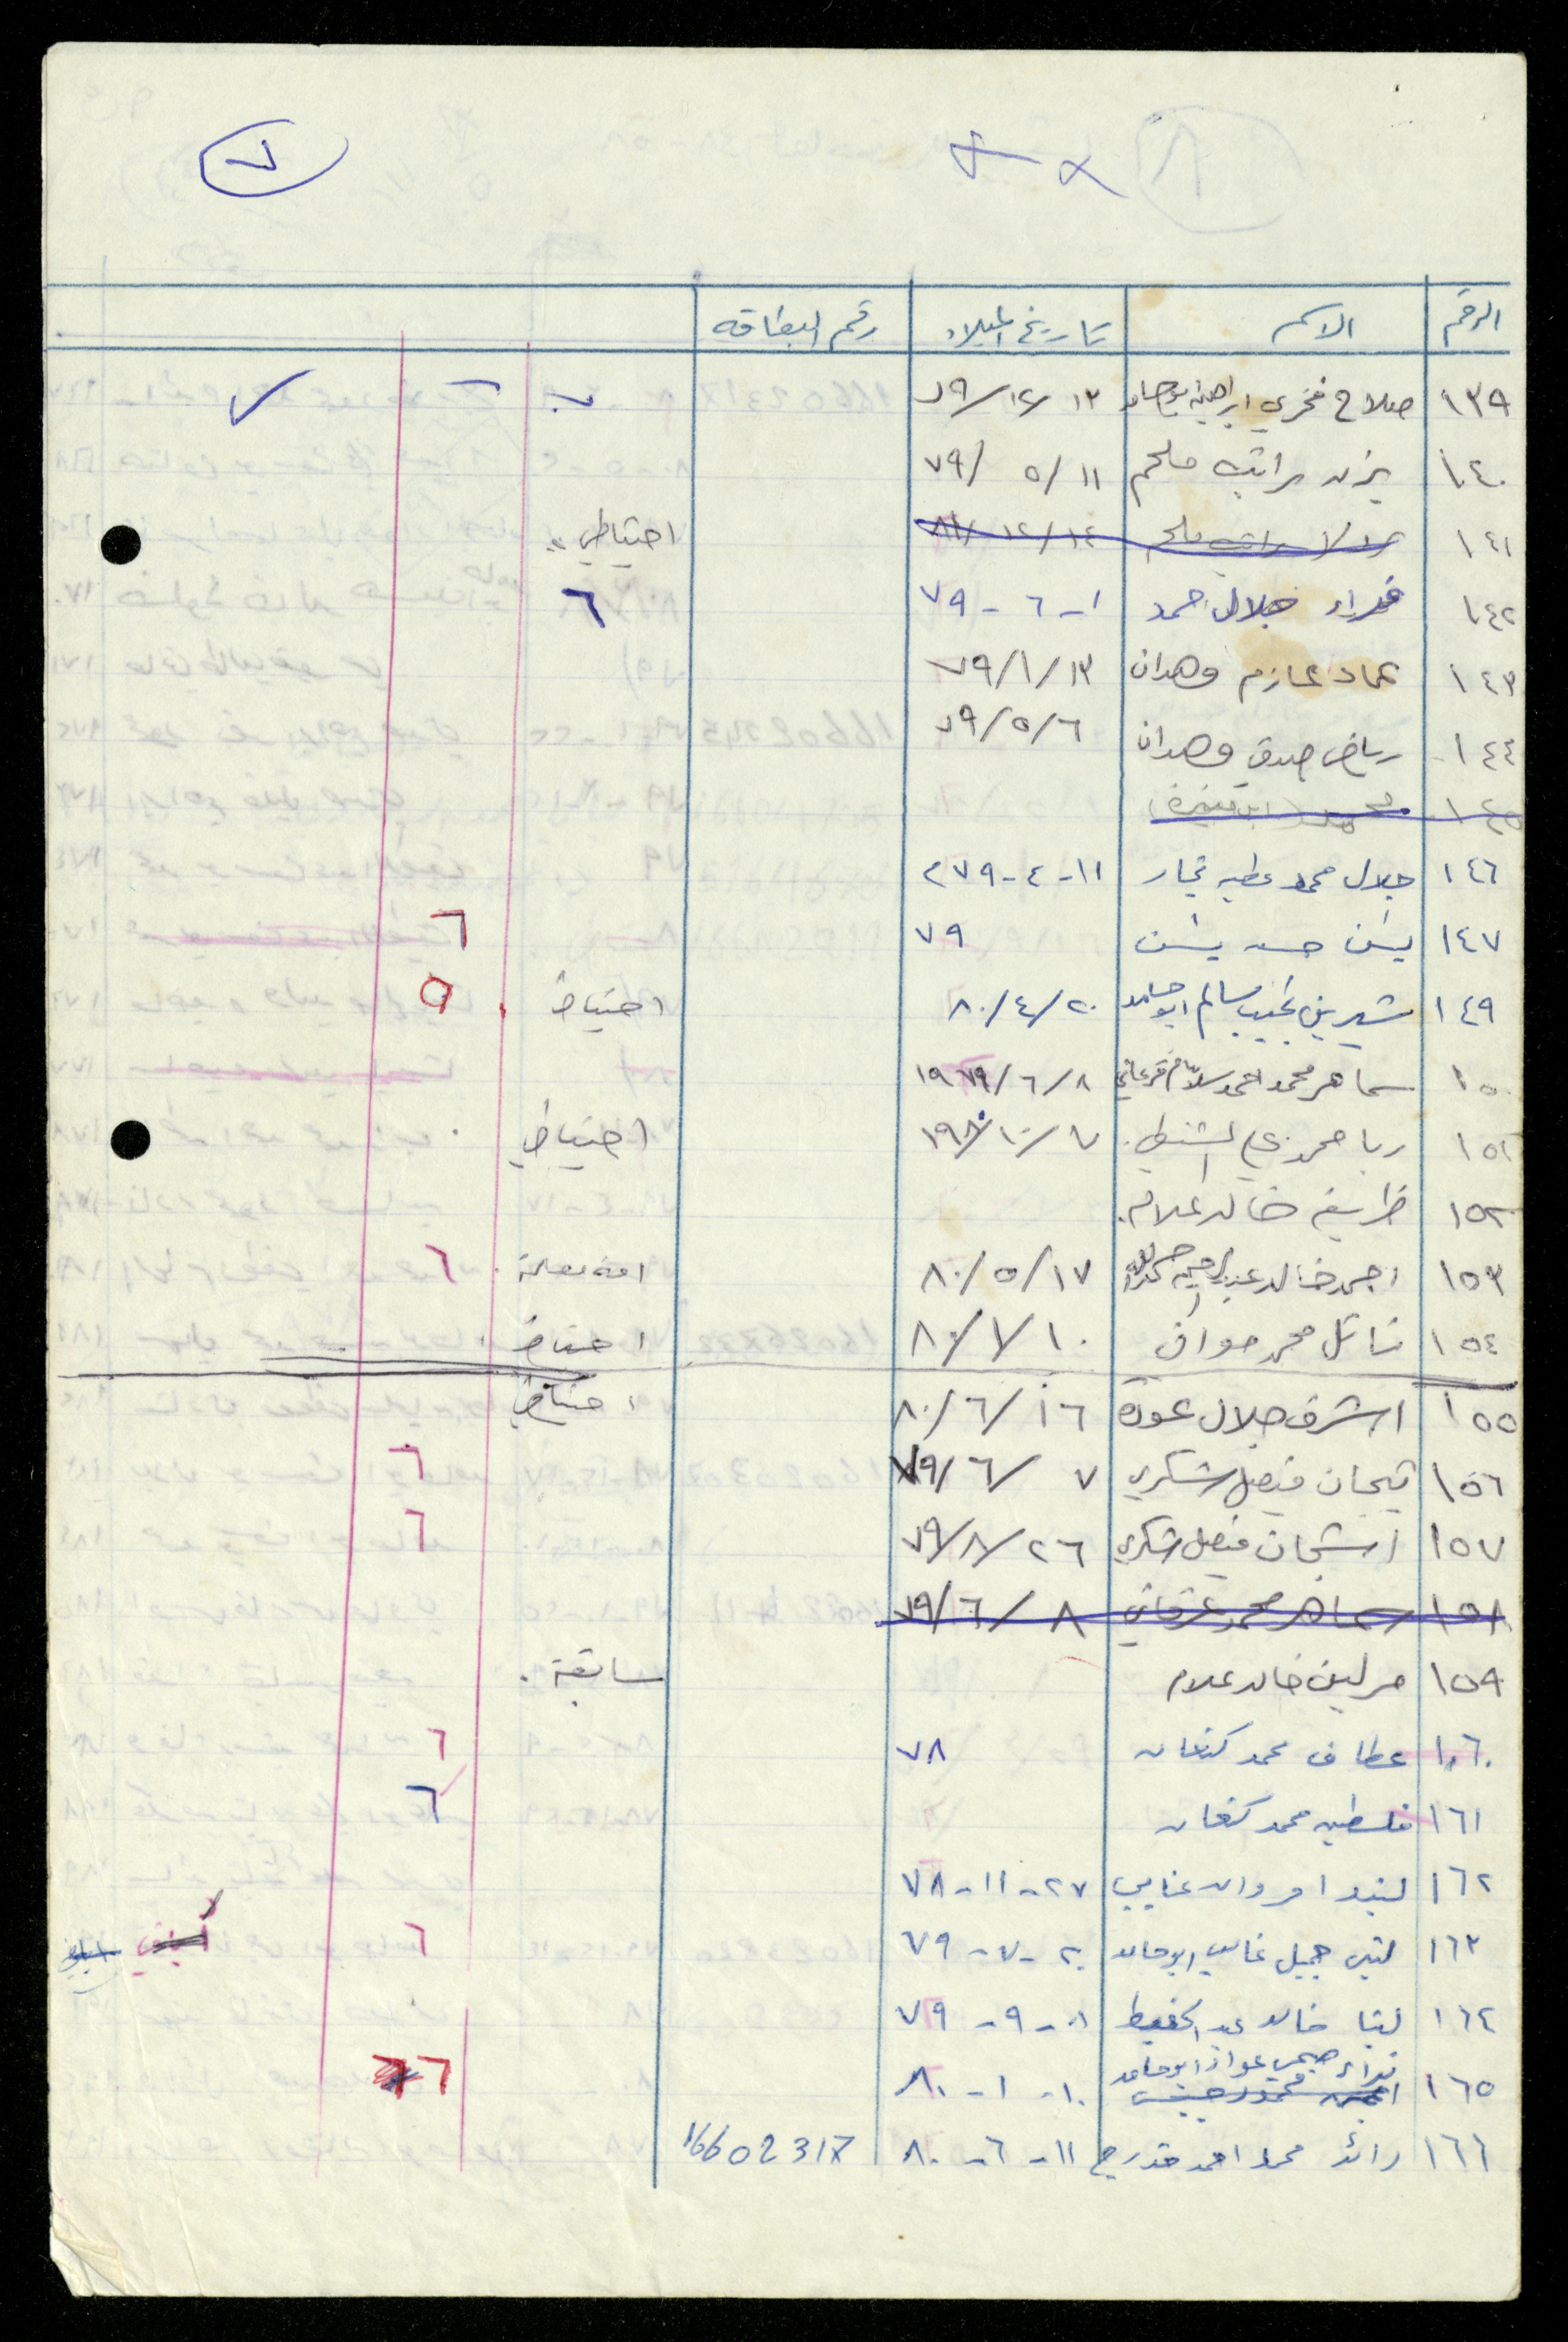 ٧
الرقم الاسم تاريخ الميلاد رقم البطاقه
١٣٩ صلاح فخري ابراهيم ١٣/١٢/٧٩ ٧
١٤٠ يزن راتب ملحم ١١/٥/٧٩
١٤١ راتب ملحم ١٤/١٢/٨١ احتياطي
١٤٢ غدراء جلال احمد ١-٦-٧٩ ٦
١٤٣ عماد حازم وهدان ١٣/١/٧٩
١٤٤ رياض صدقي وهدان ٦/٥/٧٩
١٤٥ محمد
١٤٦ جلال محمد عطيه نجار ١١-٤-٧٩م
١٤٧ يشن حسن يشن ٧٩ ٦
١٤٩ شيرين نجيب سالم ابو حامد ٢٠/٤/٨٠ احتياط ٥
١٥٠ سماهر محمد احمد سلامه قرعاني ٨/٦/١٩٧٩
١٥١ ربا محمد علي الشنطي ٧/١٠/١٩٨٠ احتياطي
١٥٢ ظريفه خالد علام
١٥٣ احمد خالد عبد الرحيم ١٧/٥/٨٠ ٦
١٥٤ نائل محمد صوافي ١٠/٧/٨٠ احتياط
١٥٥ اشرف جلال عودة ١٦/٦/٨٠ احتياط
١٥٦ تيجان فيصل شكري ٧/٦/٧٩ ٦
١٥٧ اشجان فيصل شكري ٢٦/٨/٧٩ ٦
١٥٨ سماهر محمد ٨/٦/٧٩
١٥٩ مرلين خالد علام سابقة
١٦٠ عطاف محمد كنعان ٧٨ ٦
١٦١ فلسطين محمد كنعان ٦
١٦٢ ليندا مروان عنابي ٢٧-١١-٧٨
١٦٣ لبنى جميل غالب ابو حامد ٢٠-٧-٧٩ ٦
١٦٤ لينا خالد عبد الحفيظ ٨-٩-٧٩
١٦٥ نداء صبحي عواد ابو حامد ١٠-١-٨٠ ٦
١٦٦ رائد محمد احمد مدرج ١١-٦-٨٠ 16602317